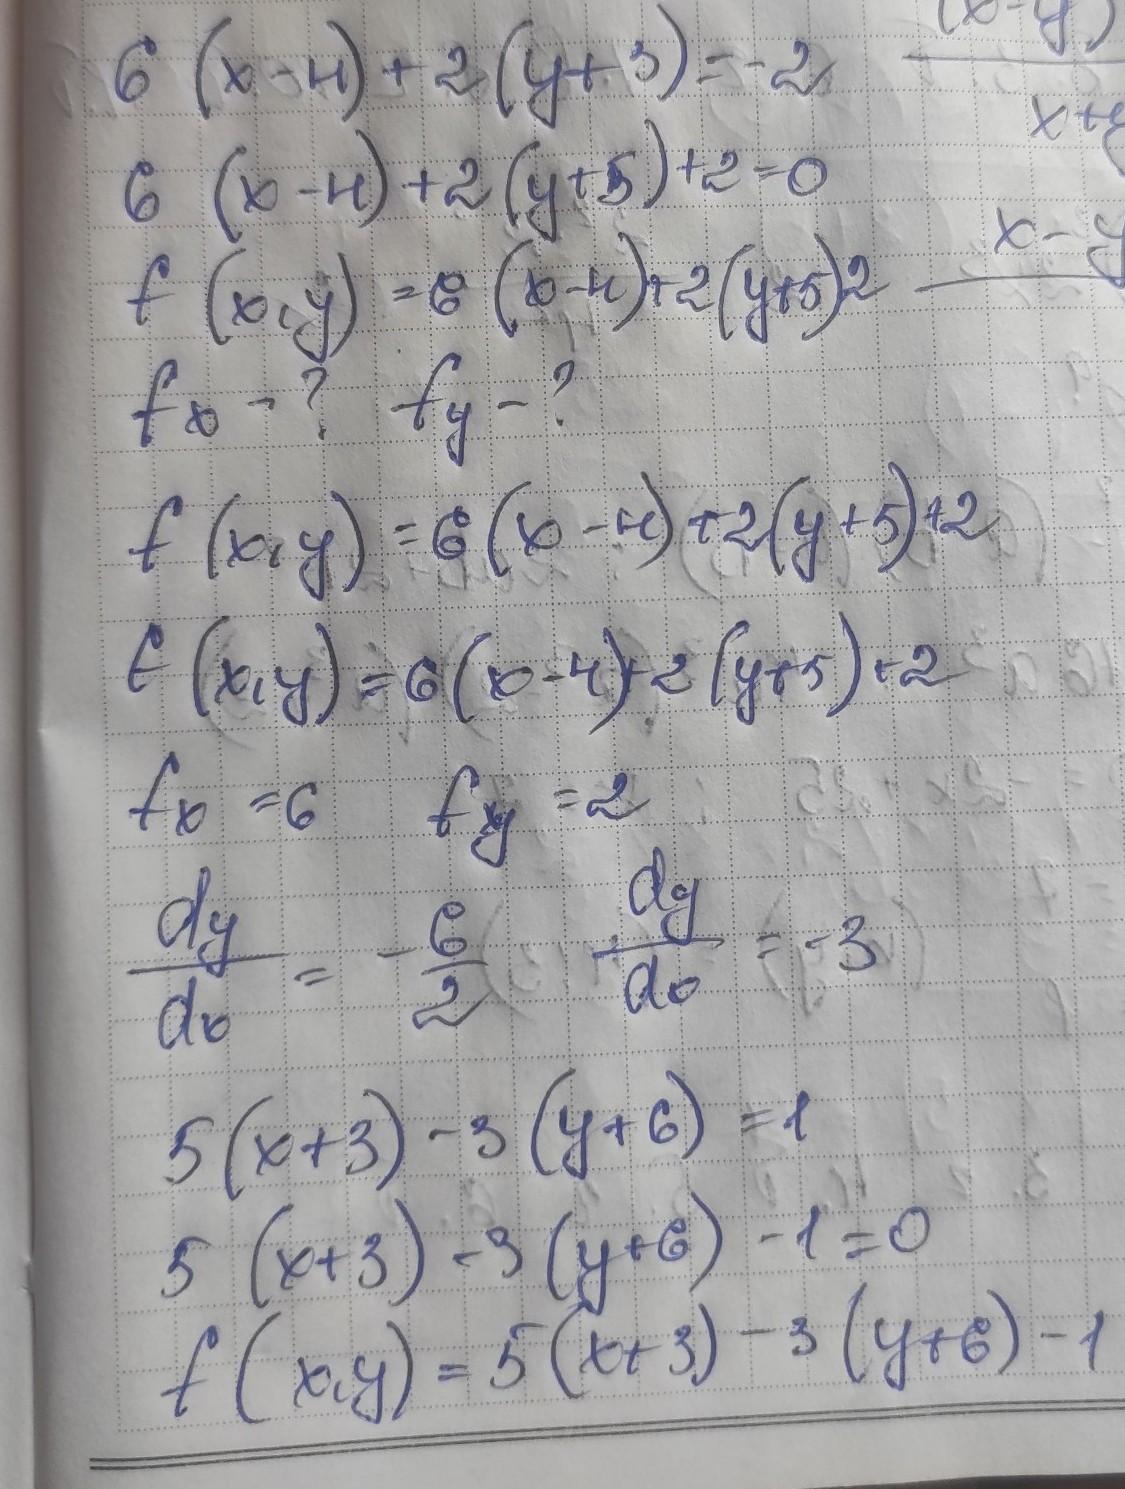 6 (x-4)+2(y+3)=-2
6 (x-4)+2(y+5)+2=0
f (x,y) =6 (x-4)+2(y+5)2
fx -? fy -?
f (x,y) =6(x-4)+2(y+5)+2
f (x,y)=6(x-4)+2(y+5)+2
fx =6 fy =2
dy/dx = -6/2 dy/dx = -3
5(x+3)-3(y+6) =1
5 (x+3) -3(y+6) -1=0
f(x,y)=5(x+3)-3(y+6)-1
(x-y)
x+y
x-y